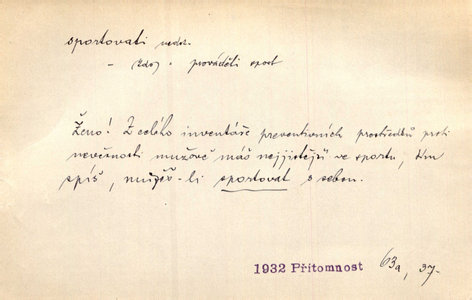 sportovati nedok.
- (kdo) • prováděti sport
Ženo! Z celého inventáře preventivních prostředků proti
nevěrnosti mužově máš nejjistější ve sportu, tím
spíš, můžeš-li sportovat s sebou.
1932 Přítomnost 63a, 37-